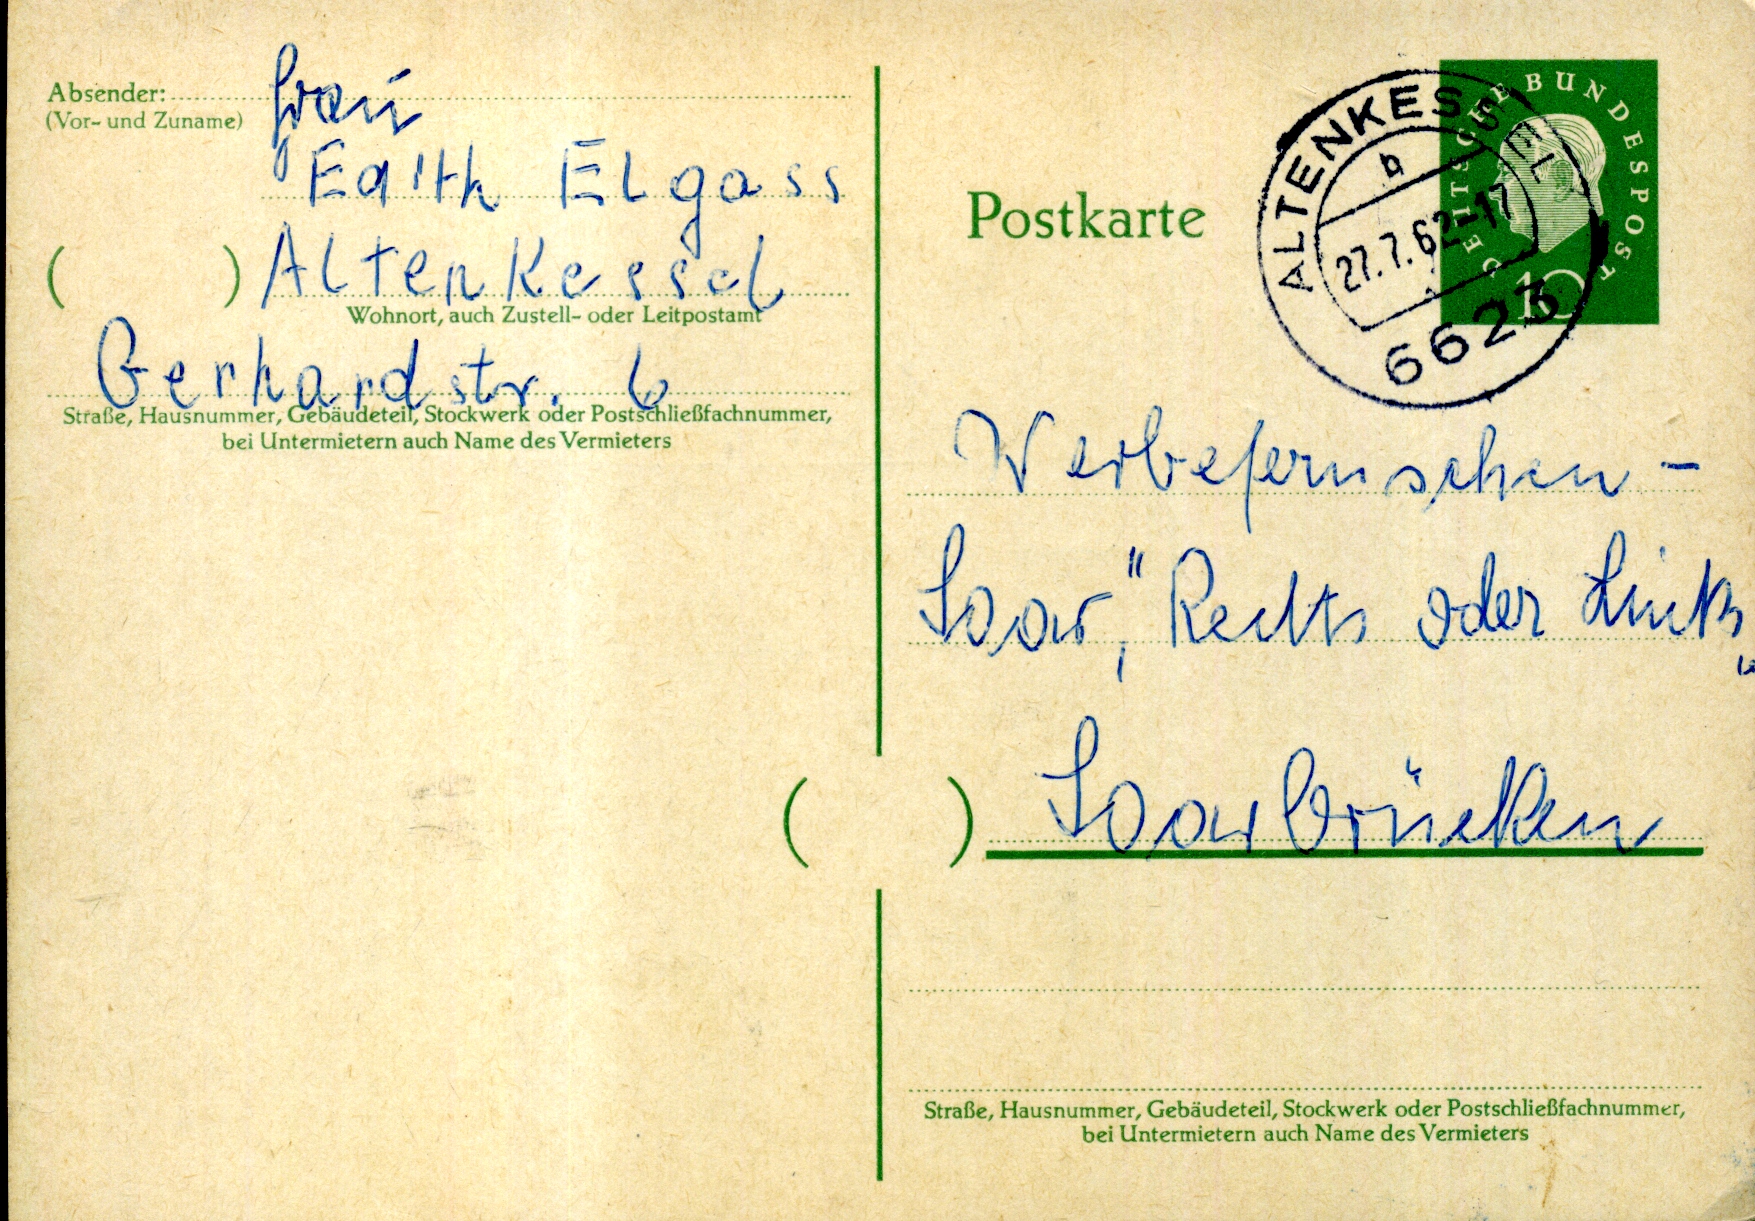 Absender:
(Vor- und Zuname)
Frau
Edith Elgass
( ) Altenkessel
Wohnort, auch Zustell- oder Leitpostamt
Gerhardstr. 6
Straße, Hausnummer, Gebäudeteil, Stockwerk oder Postschließfachnummer,
bei Untermietern auch Name des Vermieters
Postkarte
ALTENKESSEL
b
27.7.62-17
6623
DEUTSCHE BUNDESPOST
10
Werbefernsehen -
Saar, "Rechts oder Links"
( ) Saarbrücken
Straße, Hausnummer, Gebäudeteil, Stockwerk oder Postschließfachnummer,
bei Untermietern auch Name des Vermieters